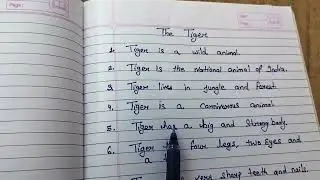 The Tiger
1. Tiger is a wild animal.
2. Tiger is the National animal of India.
3. Tiger lives in jungle and forest.
4. Tiger is a Carnivorous animal.
5. Tiger has a big and Strong body.
6. Tiger four legs, two Eyes and
a
very sharp teeth and nails.